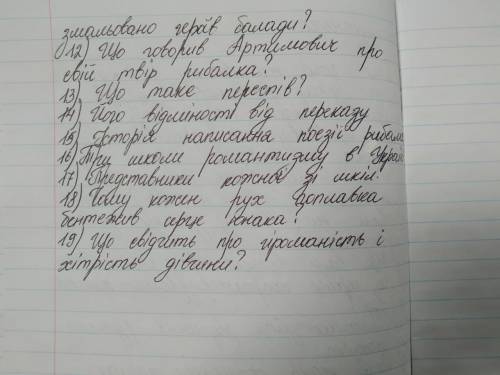 змальовано героїв балади?
12) Що говорив Артимович про
свій твір рибалка?
13) Що таке переспів?
14) Його відмінності від переказу
15) Історія написання поезії рибалка
16) Три школи романтизму в Україні
17) Представники кожної зі шкіл.
18) Чому кожен рух поплавка
бентежив серце юнака?
19) Що свідчить про гіроманість і
хітрість дівчини?